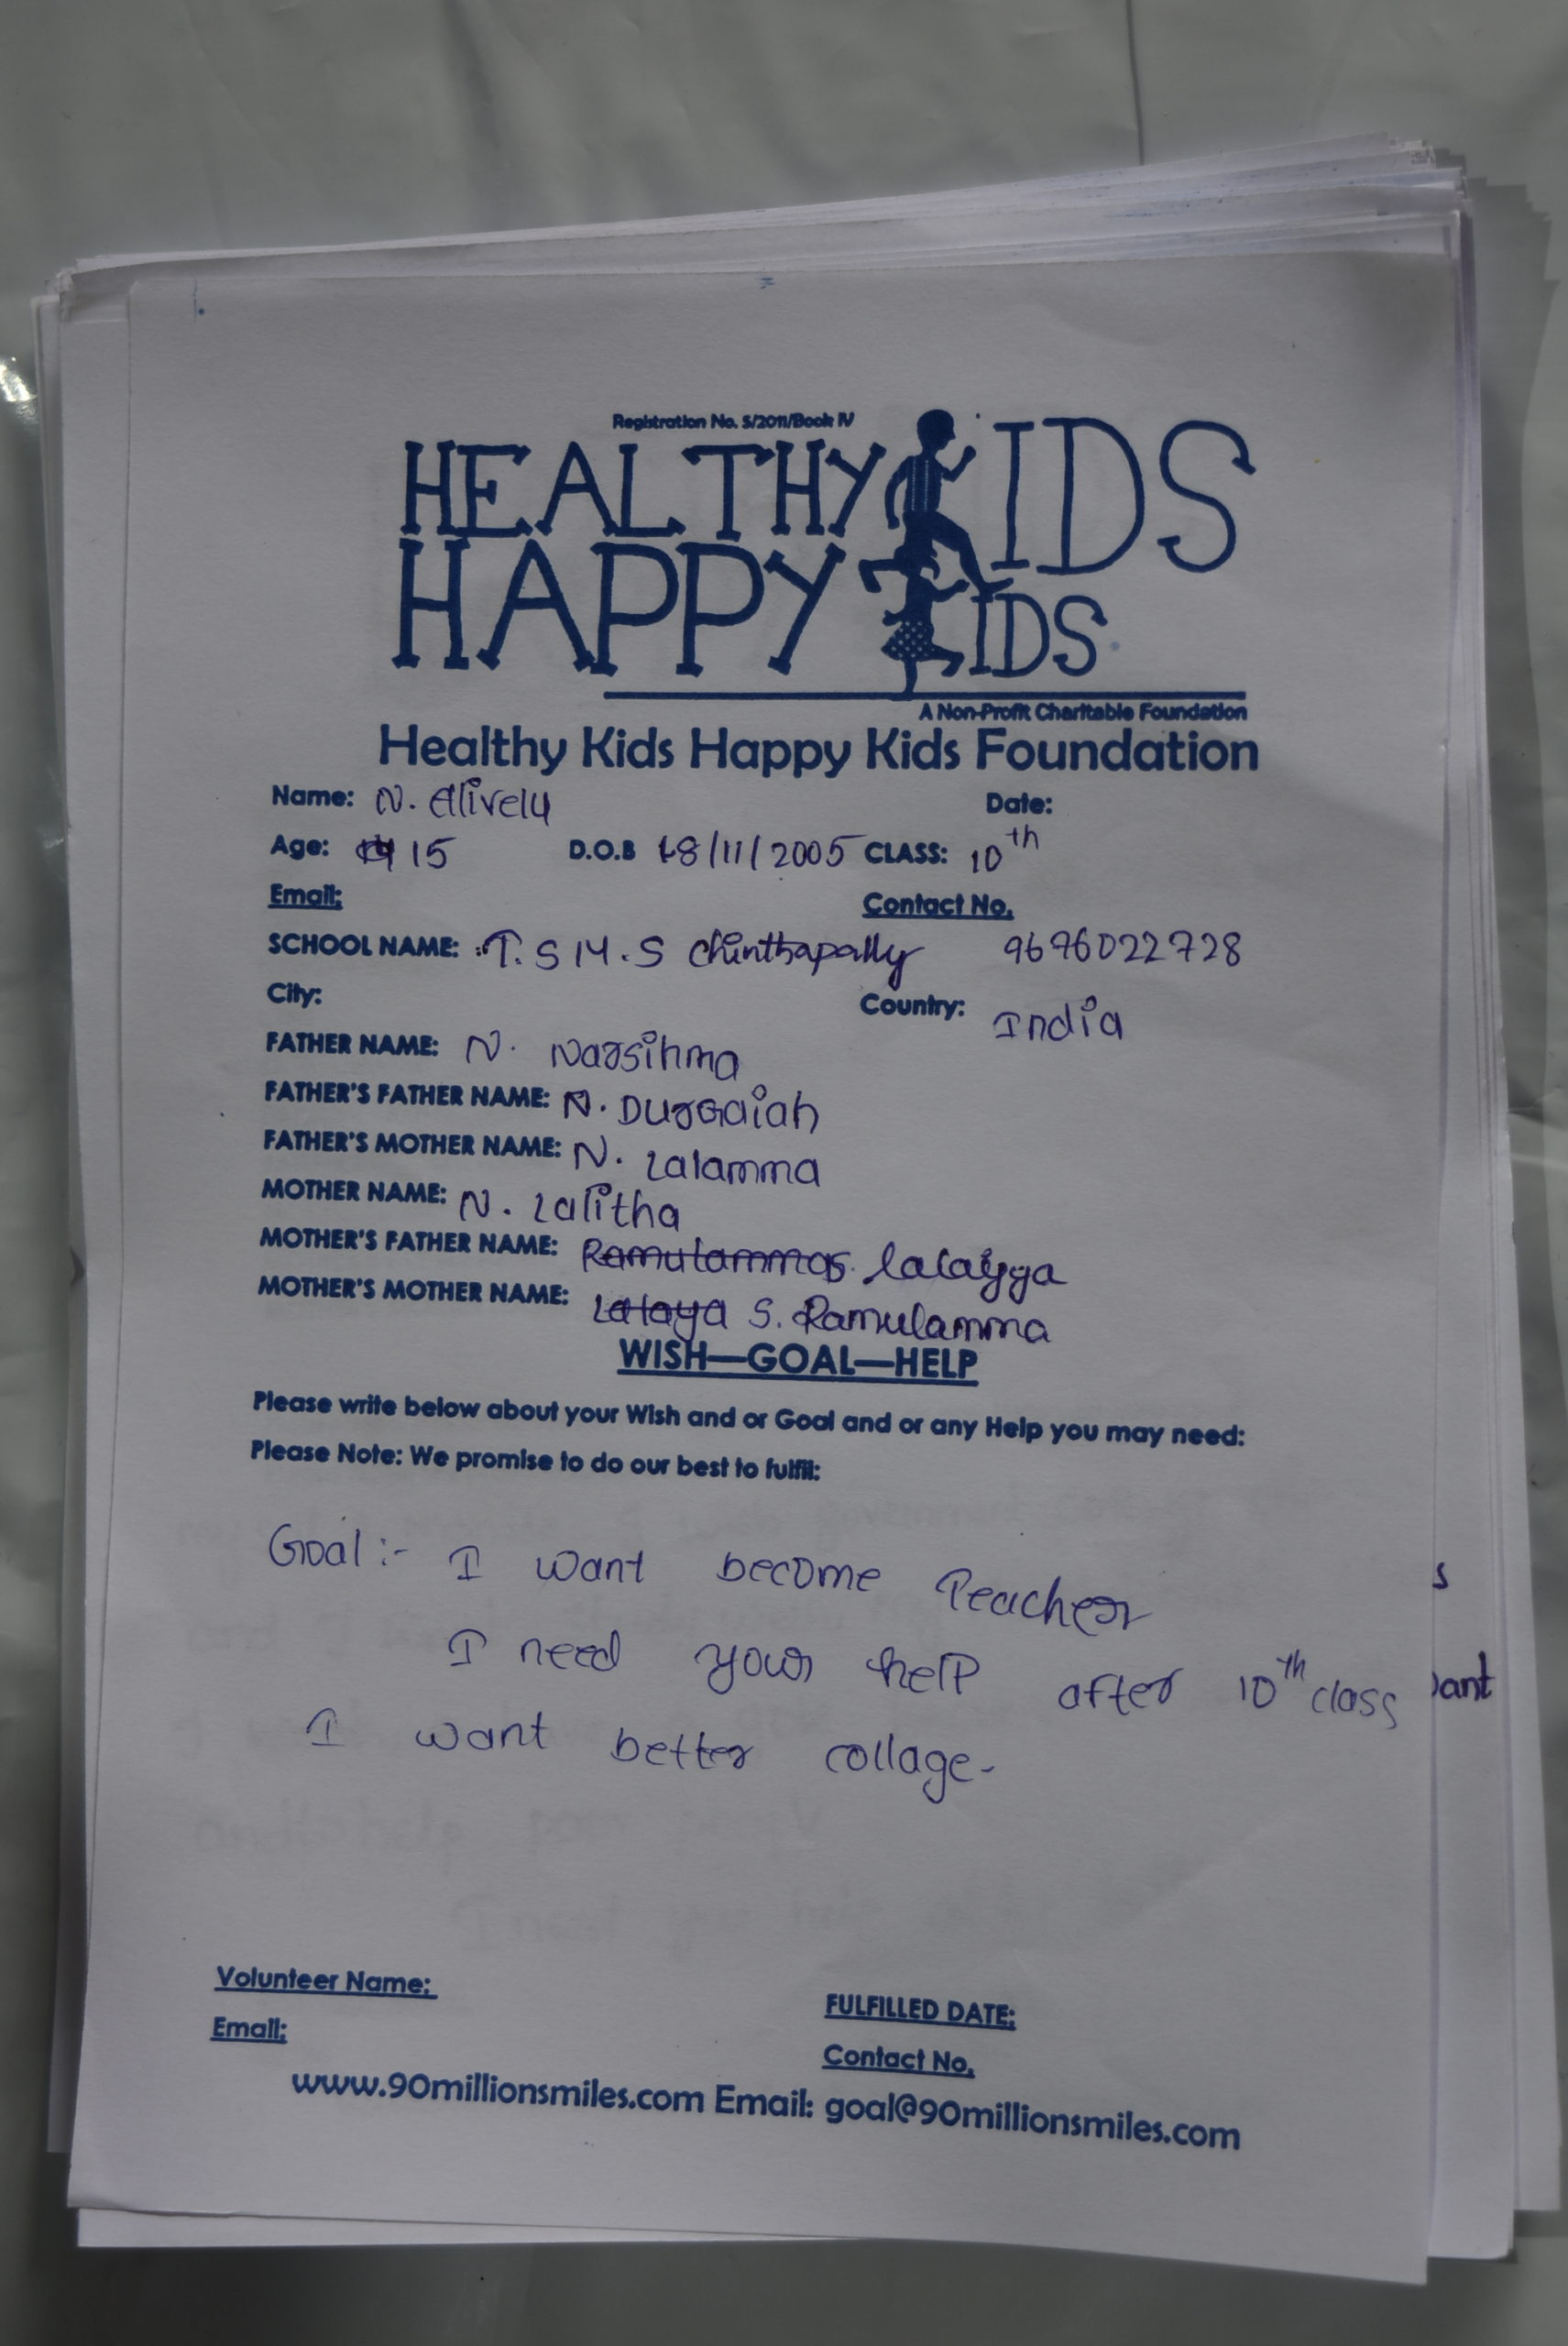 Registration No. 5/2011/Book IV
HEALTHY KIDS
HAPPY KIDS
A Non-Profit Charitable Foundation
Healthy Kids Happy Kids Foundation
Name: N. Alively Date:
Age: 15 D.O.B 18/11/2005 CLASS: 10th
Email: Contact No.
SCHOOL NAME: T.S M.S Chinthapally 9676022728
City: Country: India
FATHER NAME: N. Narsihma
FATHER'S FATHER NAME: N. DurGaiah
FATHER'S MOTHER NAME: N. Lalamma
MOTHER NAME: N. Lalitha
MOTHER'S FATHER NAME: Ramulammas. lalayya
MOTHER'S MOTHER NAME: Lalaya S. Ramulamma
WISH—GOAL—HELP
Please write below about your Wish and or Goal and or any Help you may need:
Please Note: We promise to do our best to fulfil:
Goal :- I want become Teacher
I need your help after 10th class
I want better collage-
Volunteer Name: FULFILLED DATE:
Email: Contact No.
www.90millionsmiles.com Email: goal@90millionsmiles.com